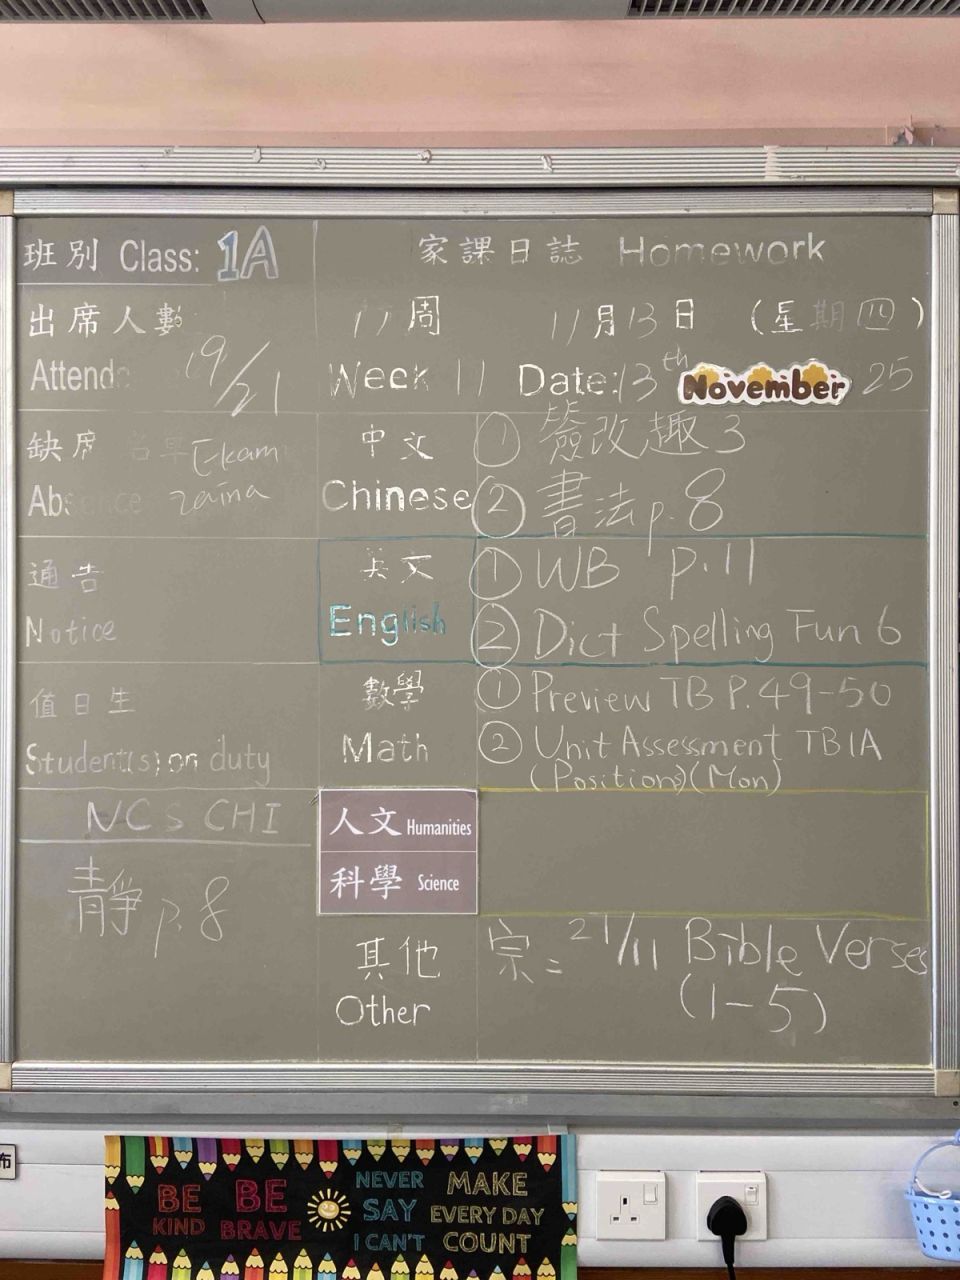 班別 Class: 1A
家課日誌 Homework
出席人數
Attend 19/21
11周 11月13日 (星期四)
Week 11 Date: 13th November 25
缺席 Ekam
Absence zaina
中文
Chinese
① 簽改趣3
② 書法p.8
通告
Notice
英文
English
① WB p.11
② Dict Spelling Fun 6
值日生
Student(s) on duty
數學
Math
① Preview TB P.49-50
② Unit Assessment TB1A
(Positions)(Mon)
NCS CHI
靜 p.8
人文 Humanities
科學 Science
其他
Other
宗= 21/11 Bible Verses
(1-5)
布
BE KIND
BE BRAVE
NEVER SAY I CAN'T
MAKE EVERY DAY COUNT